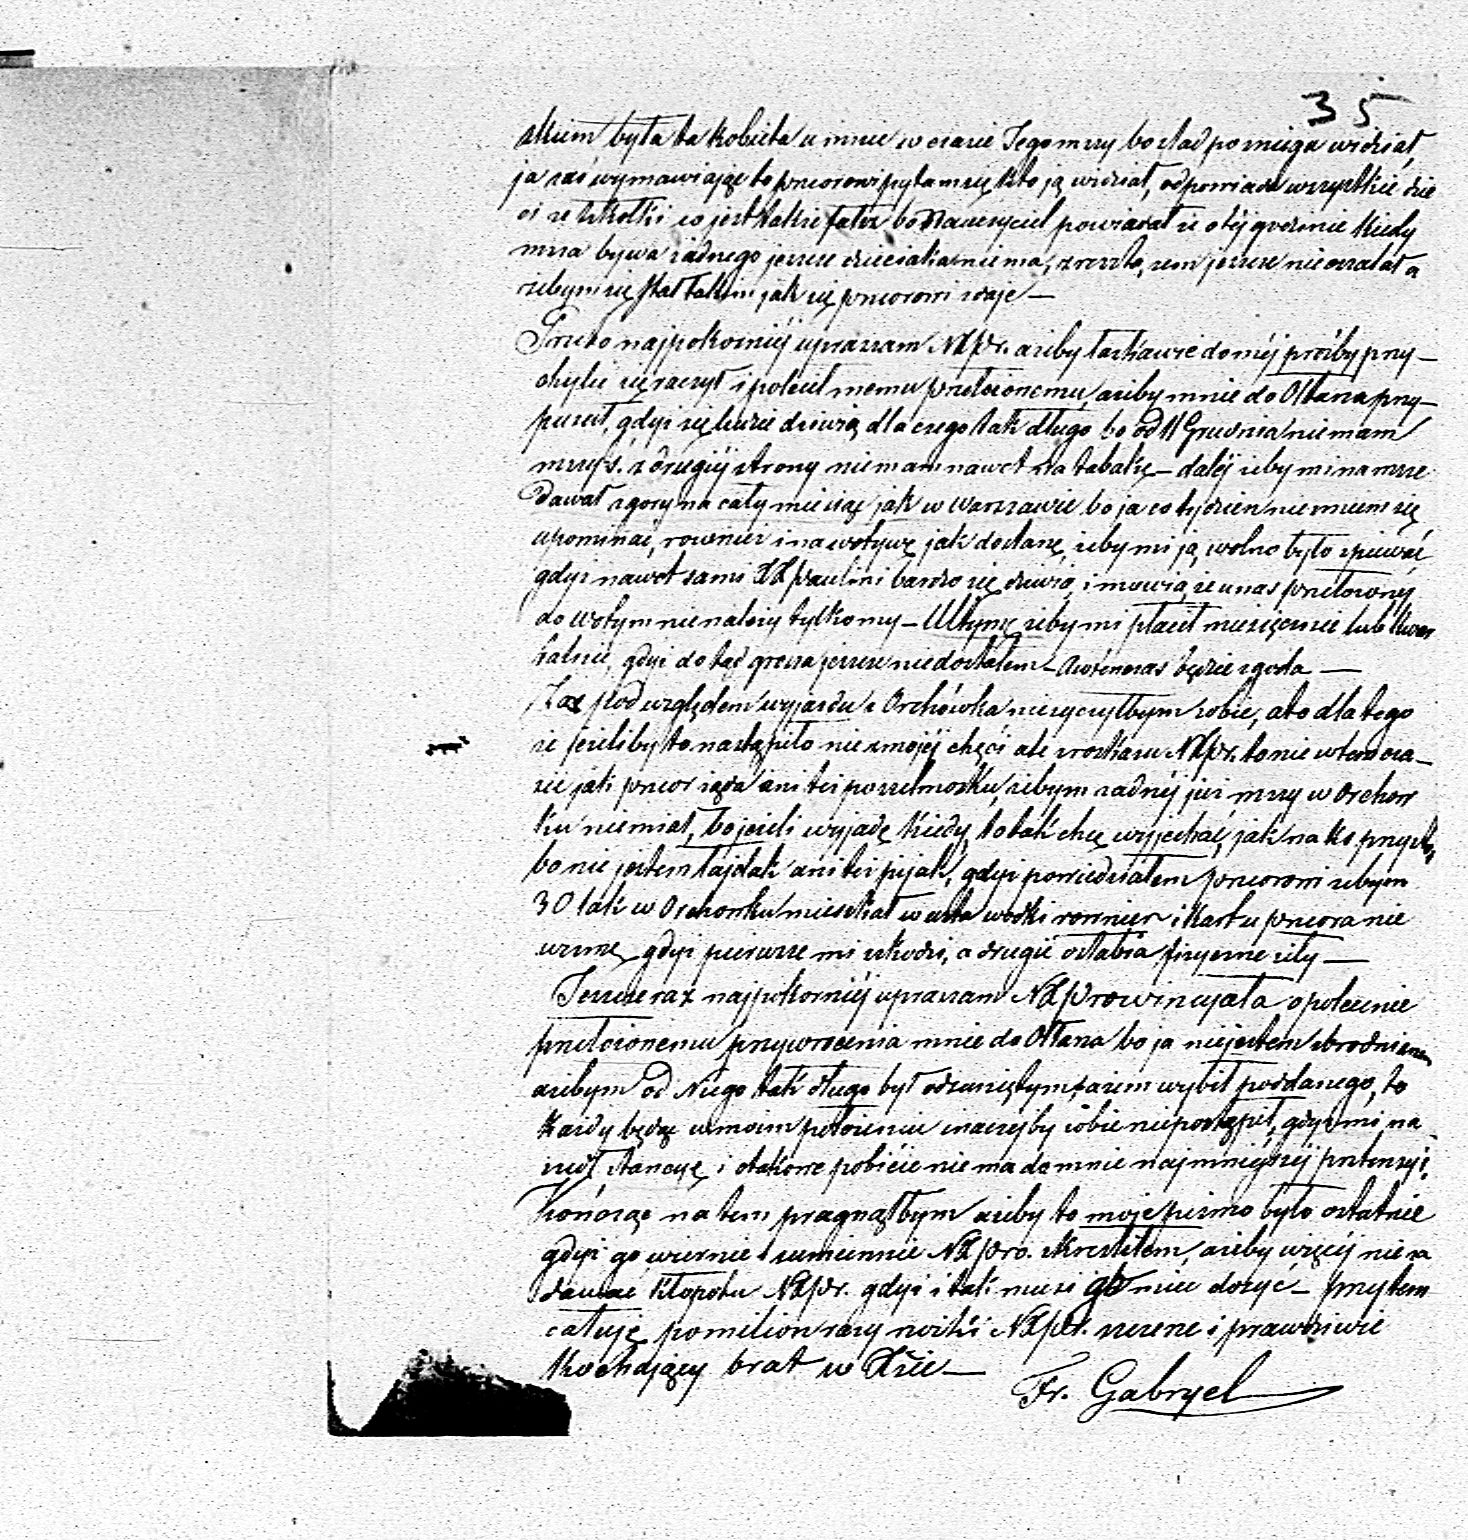 35
skiem była ta kobieta u mnie w czasie Jego mszy bo ślad po śniegu widział,
ja zaś wymawiając to przeorowi pytam się kto ją widział, odpowiada wszystkie dzie
ci ze szkółki co jest także fałsz bo Nauczyciel powiadał że o tej godzinie kiedy
msza bywa żadnego jeszcze dzieciaka niema, zresztą, zem jeszcze nie oszalał a
żebym się stał takim jak się przeorowi zdaje —
Przeto najpokorniéj upraszam NXpr. ażeby łaskawie do mej prośby przy—
chylić się raczył i polecił memu przełożonemu, ażeby mnie do Ołtarza przy—
puścił, gdyż się ludzie dziwią dla czego tak długo bo od 11 Grudnia nie mam
mszy ś. z drugiéj strony nie mam nawet na tabakę — daléj żeby mi na msze
dawał z góry na cały miesiąc jak w Warszawie bo ja co tydzień nie umiem się
upominać, rownież i na wotywę jak dostanę, żeby mi ją wolno było śpiewać,
gdyż nawet sami XX Paulini bardzo się dziwią, i mowią że u nas przełożony
do wotyw nie należy tylko my — żeby mi płacił miesięcznie lub kwar
talnie, gdyż dotąd grosza jeszcze nie dostałem — a wtenczas będzie zgoda —
Zaś pod względem wyjazdu z Orchówka nie życzyłbym sobie, a to dla tego
że jeżeliby to nastąpiło nie z mojéj chęci ale z rozkazu NXpr. to nie w tem cza—
sie jak przeor żąda ani też po szelmosku, żebym żadnéj już mszy w Orchow
ku nie miał, bo jeżeli wyjadę kiedy, to tak chcę wyjechać, jak na ks. przyst.
bo nie jestem łajdak ani też pijak, gdyż powiedziałem przeorowi żebym
30 lat w Orchowku mieszkał w usta wodki rownież i kart u przeora nie
wezmę, gdyż pierwsze mi szkodzi, a drugie osłabia fizyczne siły —
Jeszcze raz najpokorniéj upraszam NXProwincyała o polecenie
przełożonemu przywrocenia mnie do Ołtarza bo ja nie jestem zbrodniarzem
ażebym od Niego tak długo był odsuniętym, żem wybił poddanego, to
każdy będąc w moim położeniu inaczej by sobie nie postąpił, gdyż mi na
szedł stancyę i o takowe pobicie nie ma do mnie najmniejszéj pretensyi.
Kończąc na tem pragnąłbym ażeby to moje pismo było ostatnie
gdyż go wiernie i sumiennie NXpro. skreśliłem, ażeby więcéj nie za
dawać kłopotu NXpr. gdyż i tak musi go mieć dosyć — przytem
całuję po milion razy nożki NXpr. szczerze i prawdziwie
kochający brat w Xsie —
Fr. Gabryel